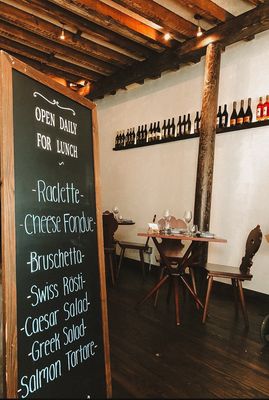 OPEN DAILY
FOR LUNCH
-Raclette-
-Cheese Fondue-
-Bruschetto-
-Swiss Rösti-
-Caesar Salad-
-Greek Salad-
-Salmon Tartare-